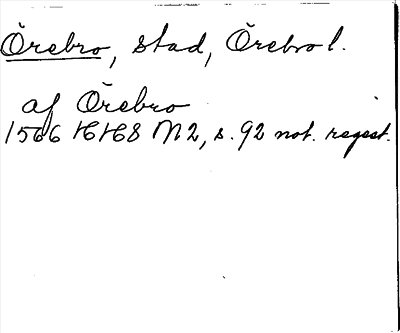 Örebro, stad, Örebro l.
af Örebro
1566 16168 M2, s. 92 not. regest.